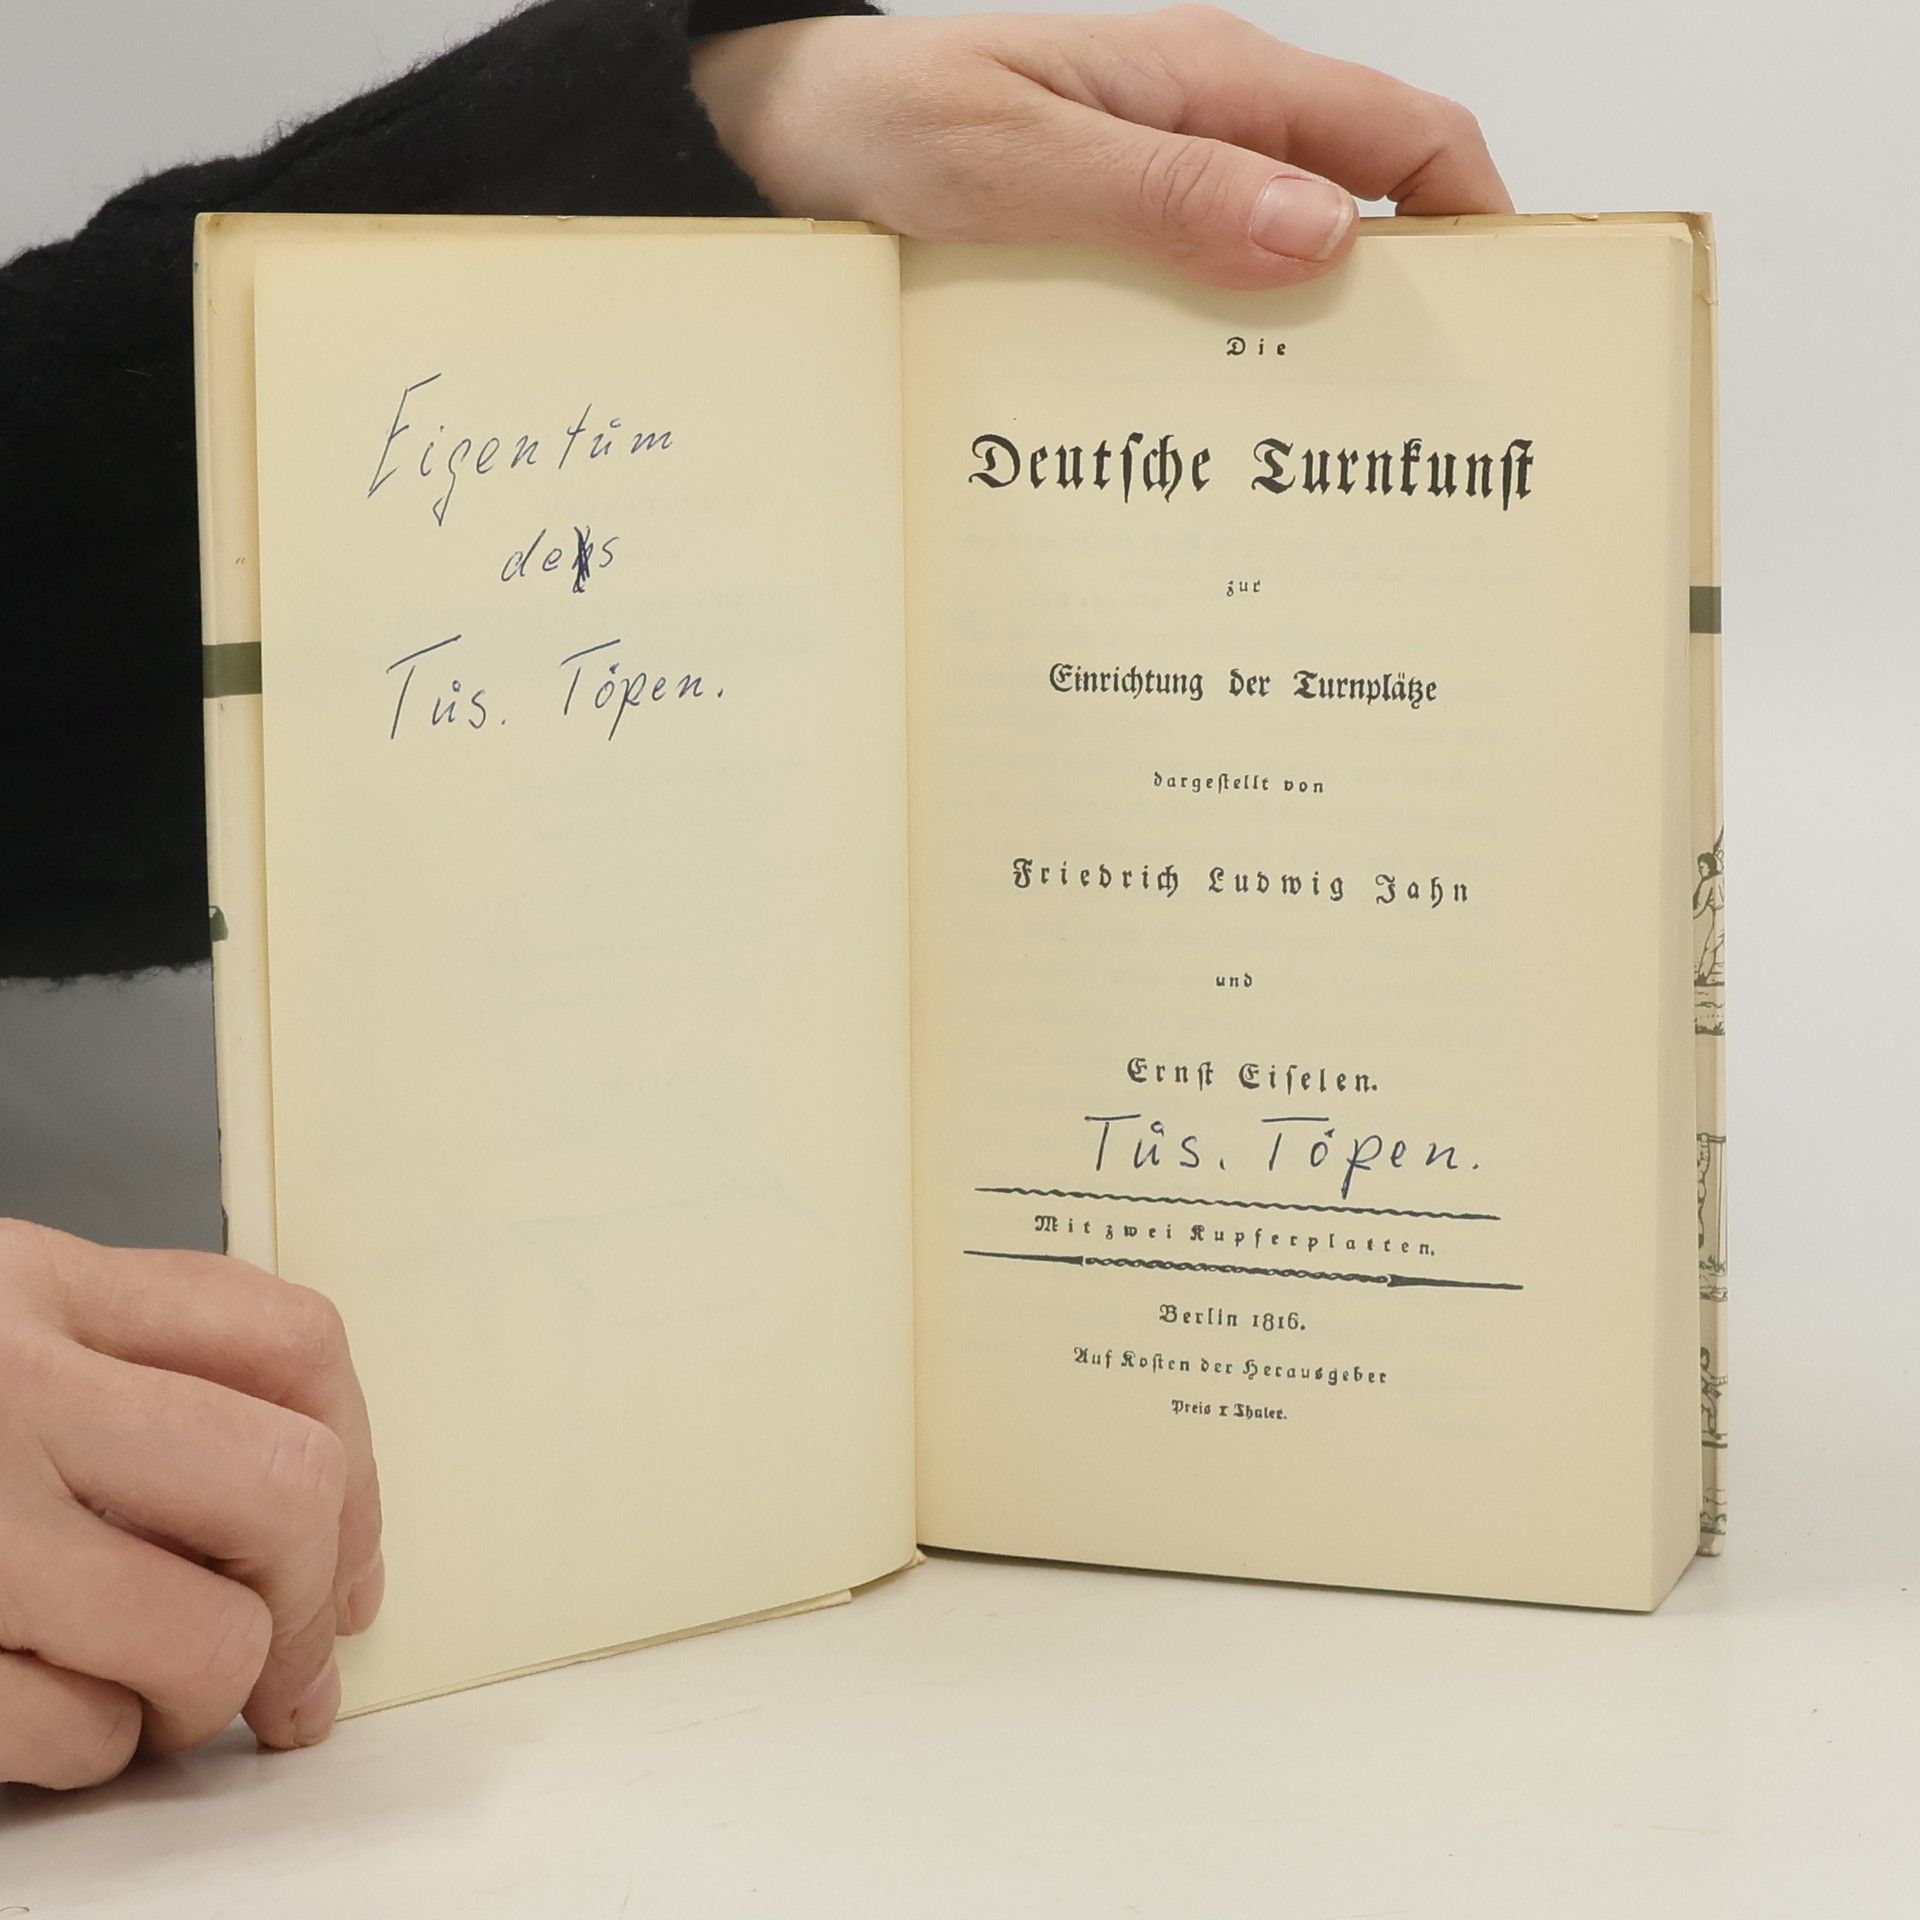 Eigentum
des
Tus. Töpen.
Die
Deutſche Turnkunſt
zur
Einrichtung der Turnplätze
dargeſtellt von
Friedrich Ludwig Jahn
und
Ernſt Eiſelen.
Tus. Töpen.
Mit zwei Kupferplatten.
Berlin 1816.
Auf Koſten der Herausgeber
Preis 1 Thaler.